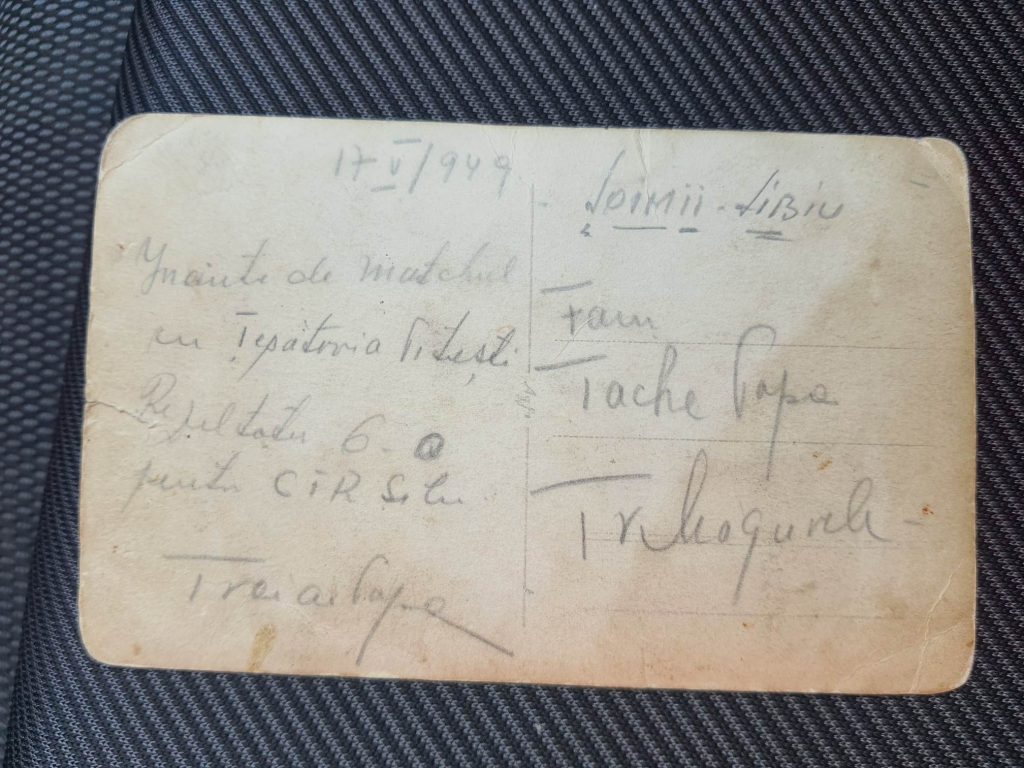 17 V/949
Înainte de matchul
cu Țesătoria Pitești
Rezultatu 6-0
pentru CFR Sibiu
Traian Popa
Șoimii - Sibiu
Fam
Tache Popa
Tr. Magurele -